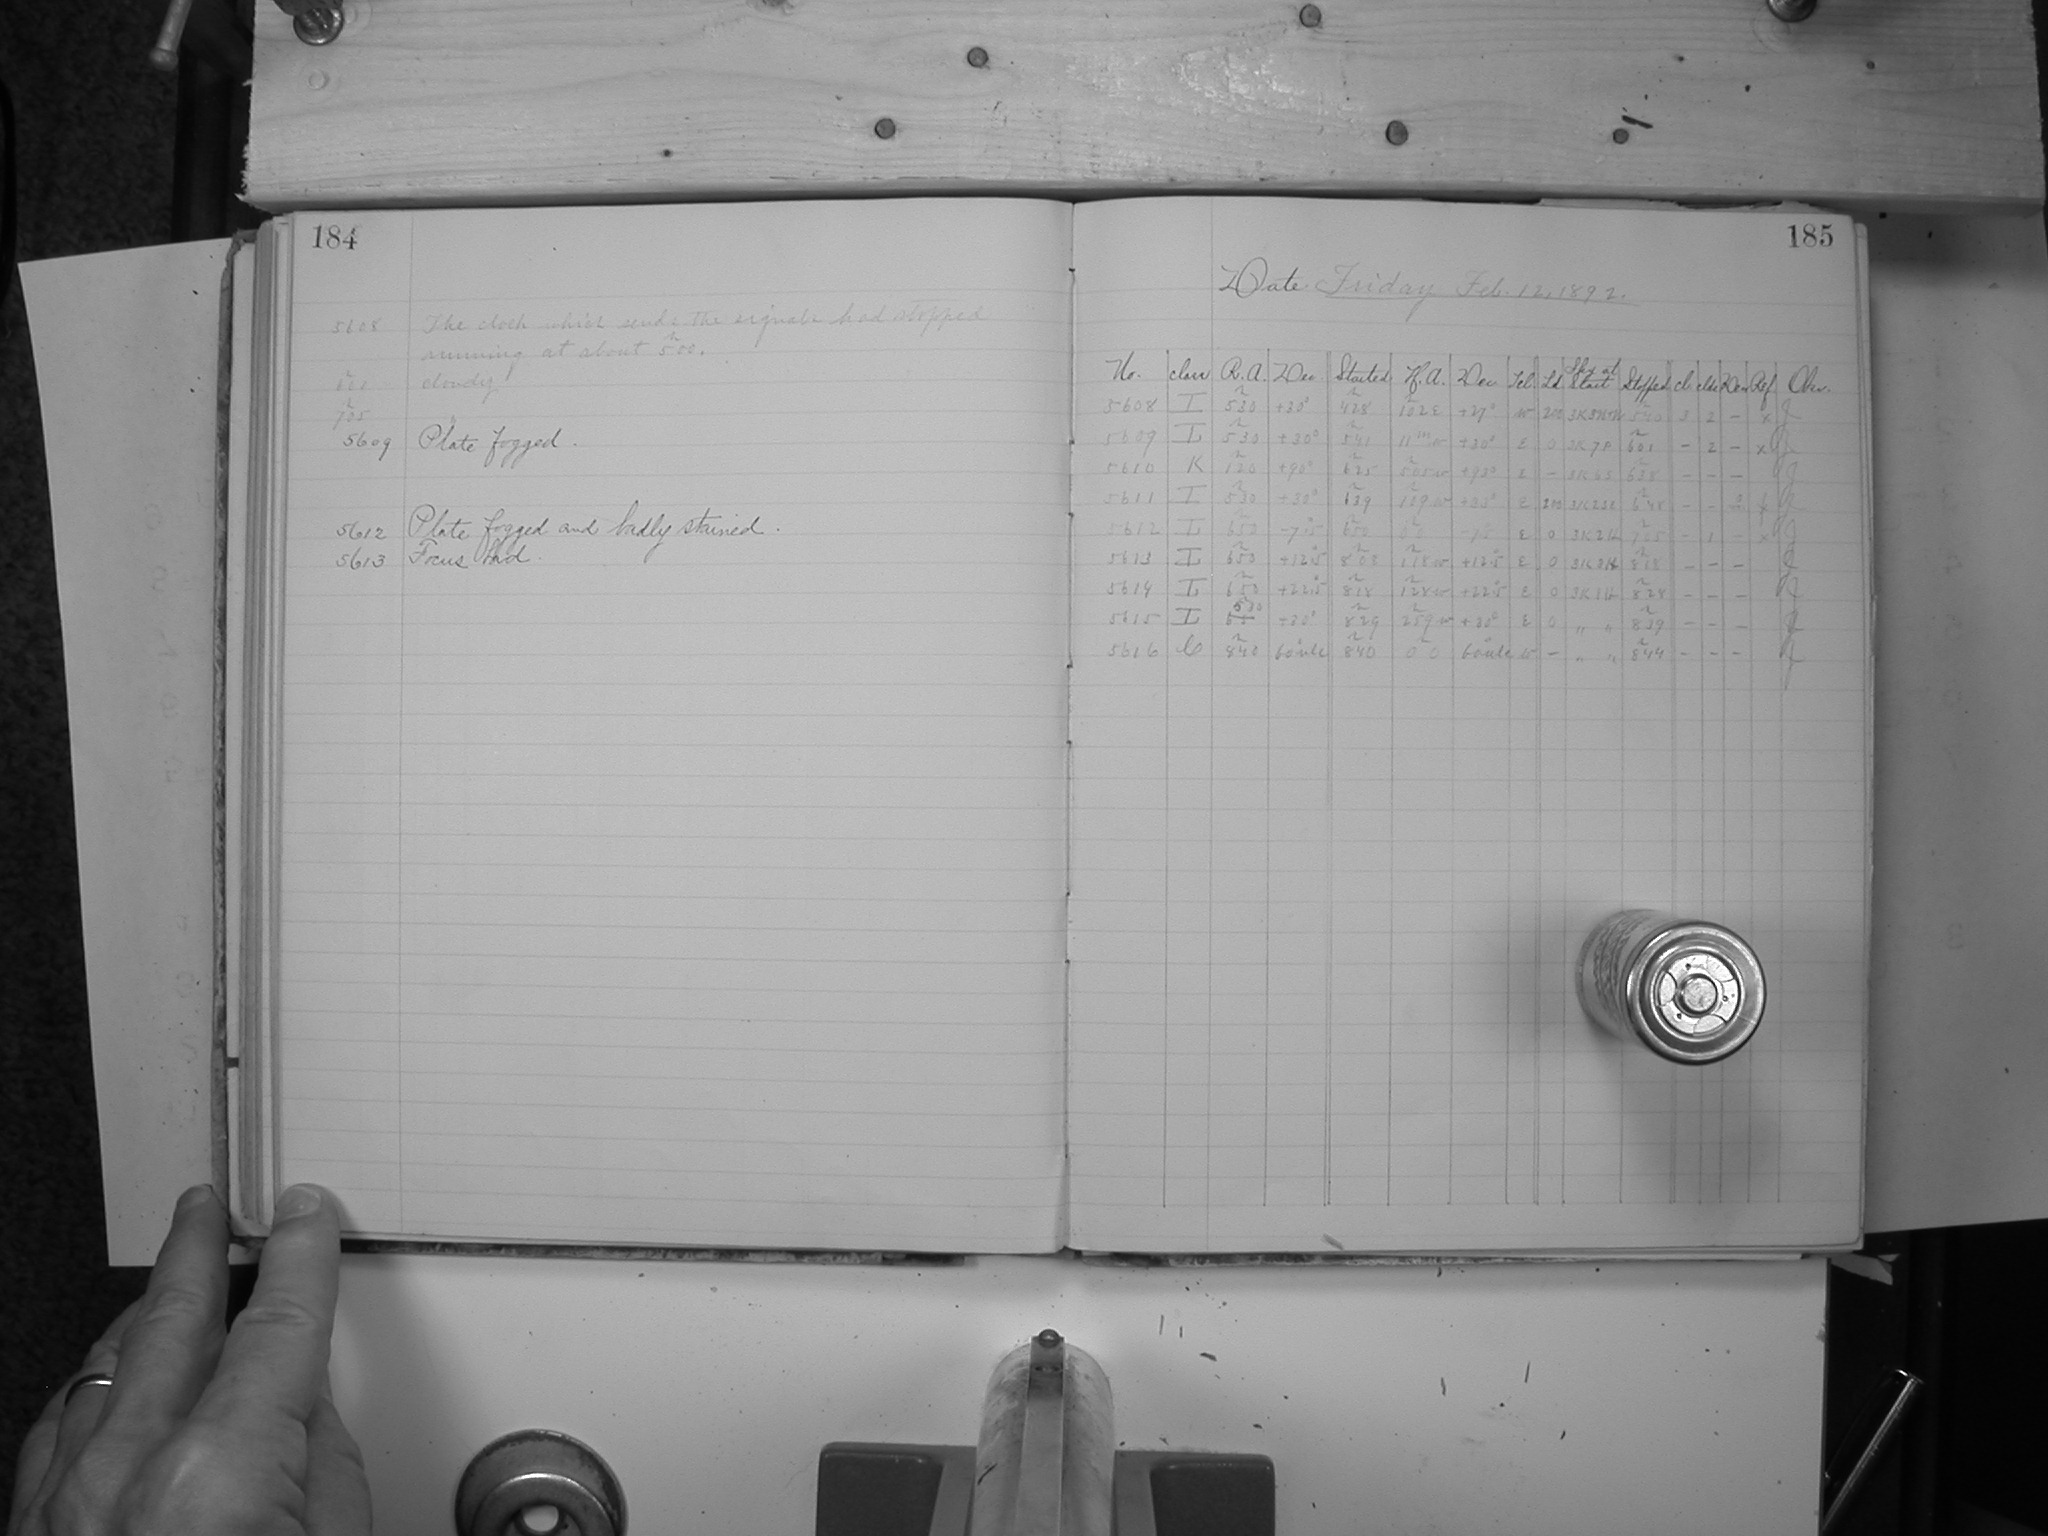 184
5608 The clock which sends the signals had stopped
running at about 5h00.
601 cloudy
705
5609 Plate fogged.
5612 Plate fogged and badly stained.
5613 Focus bad.
185
Date Friday Feb. 12, 1892.
No. class R.A. Dec. Started H.A. Dec. Tel Ld Sky at Start Stopped cl clds Dew Ref Obs.
5608 I 530 +30° 428 102E +29° w 540 3 2 - x
5609 I 530 +30° 541 11m w +30° E 0 601 - 2 - x
5610 K 120 +90° 625 505w +90° E - 635 - - -
5611 I 530 +30° 639 109w +30° E 648 - -
5612 I 650 -7.5 650 0 0 -7.5 E 0 3K2H 705 - 1 - x
5613 I 650 +12.5 808 118w +12.5 E 0 818 - - -
5614 I 650 +22.5 818 128w +22.5 E 0 3K1H 828 - - -
5615 I 530 +30° 829 259w +30° E 0 " " 839 - - -
5616 C 840 840 0 0 w - " " 844 - - -